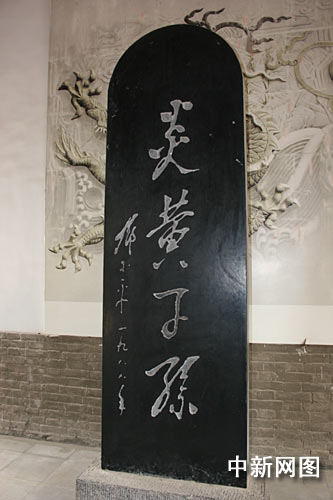 炎黄子孫
鄧小平 一九八八年
中新网图